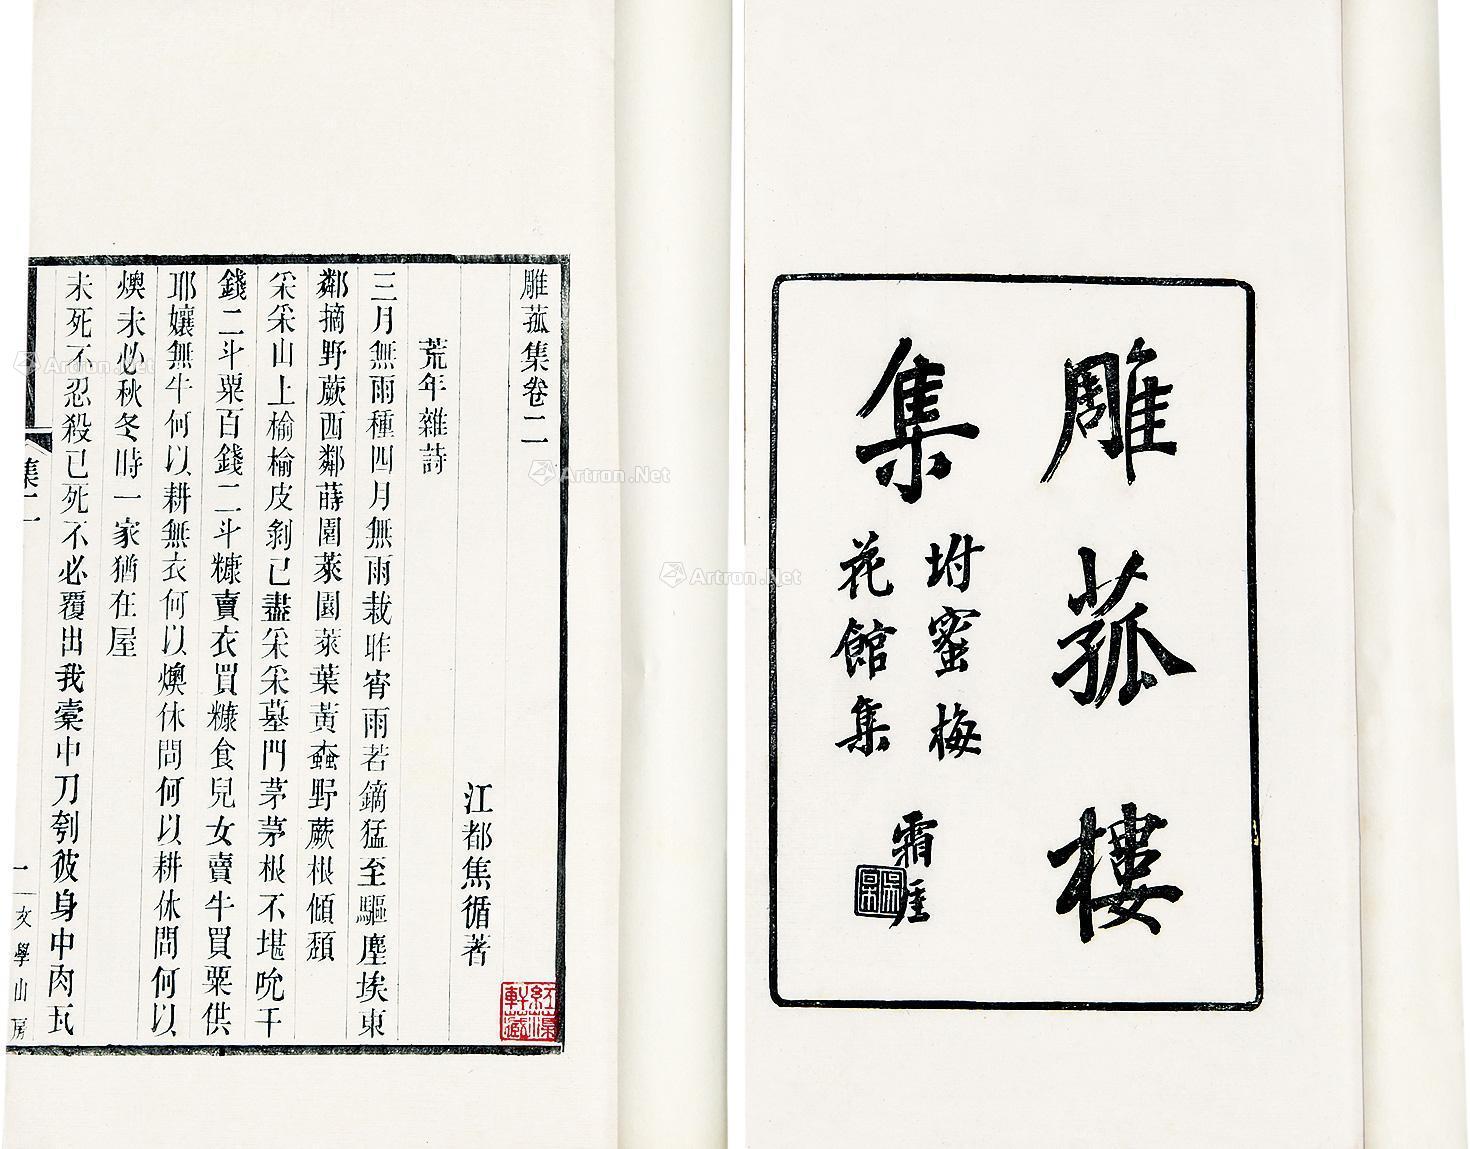 雕菰樓
集
坿蜜梅
花館集
霜厓
雕菰集卷二
江都焦循著
荒年雜詩
三月無雨種四月無雨栽昨宵雨若鏑猛至驅塵埃東
鄰摘野蕨西鄰蒔園萊園萊葉黃

野蕨根傾頹
采采山上榆榆皮剝已盡采采墓門茅茅根不堪吮千
錢二斗粟百錢二斗糠賣衣買糠食兒女賣牛買粟供
耶孃無牛何以耕無衣何以燠休問何以耕休問何以
燠未必秋冬時一家猶在屋
未死不忍殺已死不必覆出我橐中刀刳彼身中肉瓦
集二
一
文學山房
Artron.Net
Artron.Net
Artron.Net